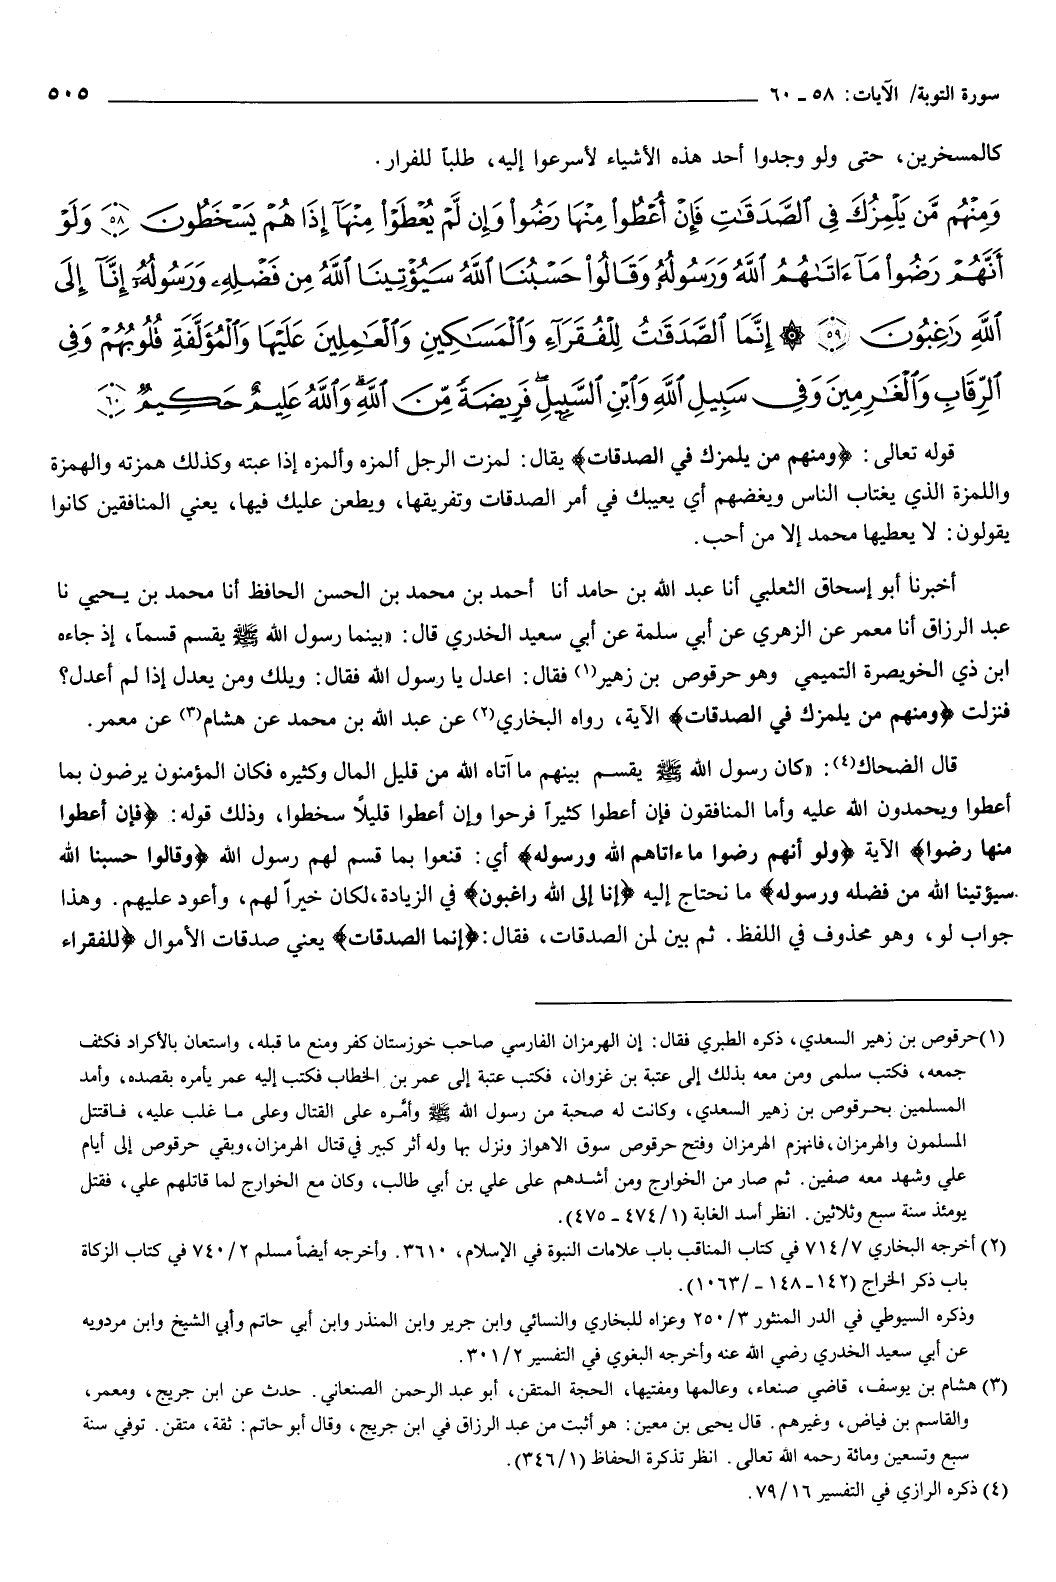 سورة التوبة/ الآيات: ٥٨ ـ ٦٠ ٥٠٥
كالمسخرين، حتى ولو وجدوا أحد هذه الأشياء لأسرعوا إليه، طلباً للفرار.
وَمِنْهُم مَّن يَلْمِزُكَ فِي ٱلصَّدَقَٰتِ فَإِنْ أُعْطُوا۟ مِنْهَا رَضُوا۟ وَإِن لَّمْ يُعْطَوْا۟ مِنْهَآ إِذَا هُمْ يَسْخَطُونَ ۝٥٨ وَلَوْ
أَنَّهُمْ رَضُوا۟ مَآ ءَاتَىٰهُمُ ٱللَّهُ وَرَسُولُهُۥ وَقَالُوا۟ حَسْبُنَا ٱللَّهُ سَيُؤْتِينَا ٱللَّهُ مِن فَضْلِهِۦ وَرَسُولُهُۥٓ إِنَّآ إِلَى
ٱللَّهِ رَٰغِبُونَ ۝٥٩ ۞ إِنَّمَا ٱلصَّدَقَٰتُ لِلْفُقَرَآءِ وَٱلْمَسَٰكِينِ وَٱلْعَٰمِلِينَ عَلَيْهَا وَٱلْمُؤَلَّفَةِ قُلُوبُهُمْ وَفِى
ٱلرِّقَابِ وَٱلْغَٰرِمِينَ وَفِى سَبِيلِ ٱللَّهِ وَٱبْنِ ٱلسَّبِيلِ ۖ فَرِيضَةً مِّنَ ٱللَّهِ ۗ وَٱللَّهُ عَلِيمٌ حَكِيمٌ ۝٦٠
قوله تعالى: ﴿ومنهم من يلمزك في الصدقات﴾ يقال: لمزت الرجل ألمزه وألمزه إذا عبته وكذلك همزته والهمزة
واللمزة الذي يغتاب الناس ويغضهم أي يعيبك في أمر الصدقات وتفريقها، ويطعن عليك فيها، يعني المنافقين كانوا
يقولون: لا يعطيها محمد إلا من أحب.
أخبرنا أبو إسحاق الثعلبي أنا عبد الله بن حامد أنا أحمد بن محمد بن الحسن الحافظ أنا محمد بن يحيي نا
عبد الرزاق أنا معمر عن الزهري عن أبي سلمة عن أبي سعيد الخدري قال: «بينما رسول الله ﷺ يقسم قسماً، إذ جاءه
ابن ذي الخويصرة التميمي وهو حرقوص بن زهير(١) فقال: اعدل يا رسول الله فقال: ويلك ومن يعدل إذا لم أعدل؟
فنزلت ﴿ومنهم من يلمزك في الصدقات﴾ الآية، رواه البخاري(٢) عن عبد الله بن محمد عن هشام(٣) عن معمر.
قال الضحاك(٤): «كان رسول الله ﷺ يقسم بينهم ما آتاه الله من قليل المال وكثيره فكان المؤمنون يرضون بما
أعطوا ويحمدون الله عليه وأما المنافقون فإن أعطوا كثيراً فرحوا وإن أعطوا قليلاً سخطوا، وذلك قوله: ﴿فإن أعطوا
منها رضوا﴾ الآية ﴿ولو أنهم رضوا ما ءاتاهم الله ورسوله﴾ أي: قنعوا بما قسم لهم رسول الله ﴿وقالوا حسبنا الله
سيؤتينا الله من فضله ورسوله﴾ ما نحتاج إليه ﴿إنا إلى الله راغبون﴾ في الزيادة،لكان خيراً لهم، وأعود عليهم. وهذا
جواب لو، وهو محذوف في اللفظ. ثم بين لمن الصدقات، فقال:﴿إنما الصدقات﴾ يعني صدقات الأموال ﴿للفقراء
(١)حرقوص بن زهير السعدي، ذكره الطبري فقال: إن الهرمزان الفارسي صاحب خوزستان كفر ومنع ما قبله، واستعان بالأكراد فكثف
جمعه، فكتب سلمى ومن معه بذلك إلى عتبة بن غزوان، فكتب عتبة إلى عمر بن الخطاب فكتب إليه عمر يأمره بقصده، وأمد
المسلمين بحرقوص بن زهير السعدي، وكانت له صحبة من رسول الله ﷺ وأمّره على القتال وعلى ما غلب عليه، فاقتتل
المسلمون والهرمزان،فانهزم الهرمزان وفتح حرقوص سوق الاهواز ونزل بها وله أثر كبير في قتال الهرمزان،وبقي حرقوص إلى أيام
علي وشهد معه صفين. ثم صار من الخوارج ومن أشدهم على علي بن أبي طالب، وكان مع الخوارج لما قاتلهم علي، فقتل
يومئذ سنة سبع وثلاثين. انظر أسد الغابة (١/ ٤٧٤ ـ ٤٧٥).
(٢) أخرجه البخاري ٧/ ٧١٤ في كتاب المناقب باب علامات النبوة في الإسلام، ٣٦١٠. وأخرجه أيضاً مسلم ٢/ ٧٤٠ في كتاب الزكاة
باب ذكر الخراج (١٤٢ـ ١٤٨ ـ /١٠٦٣).
وذكره السيوطي في الدر المنثور ٣/ ٢٥٠ وعزاه للبخاري والنسائي وابن جرير وابن المنذر وابن أبي حاتم وأبي الشيخ وابن مردويه
عن أبي سعيد الخدري رضي الله عنه وأخرجه البغوي في التفسير ٢/ ٣٠١.
(٣) هشام بن يوسف، قاضي صنعاء، وعالمها ومفتيها، الحجة المتقن، أبو عبد الرحمن الصنعاني. حدث عن ابن جريج، ومعمر،
والقاسم بن فياض، وغيرهم. قال يحيى بن معين: هو أثبت من عبد الرزاق في ابن جريج، وقال أبو حاتم: ثقة، متقن. توفي سنة
سبع وتسعين ومائة رحمه الله تعالى. انظر تذكرة الحفاظ (١/ ٣٤٦).
(٤) ذكره الرازي في التفسير ١٦/ ٧٩.